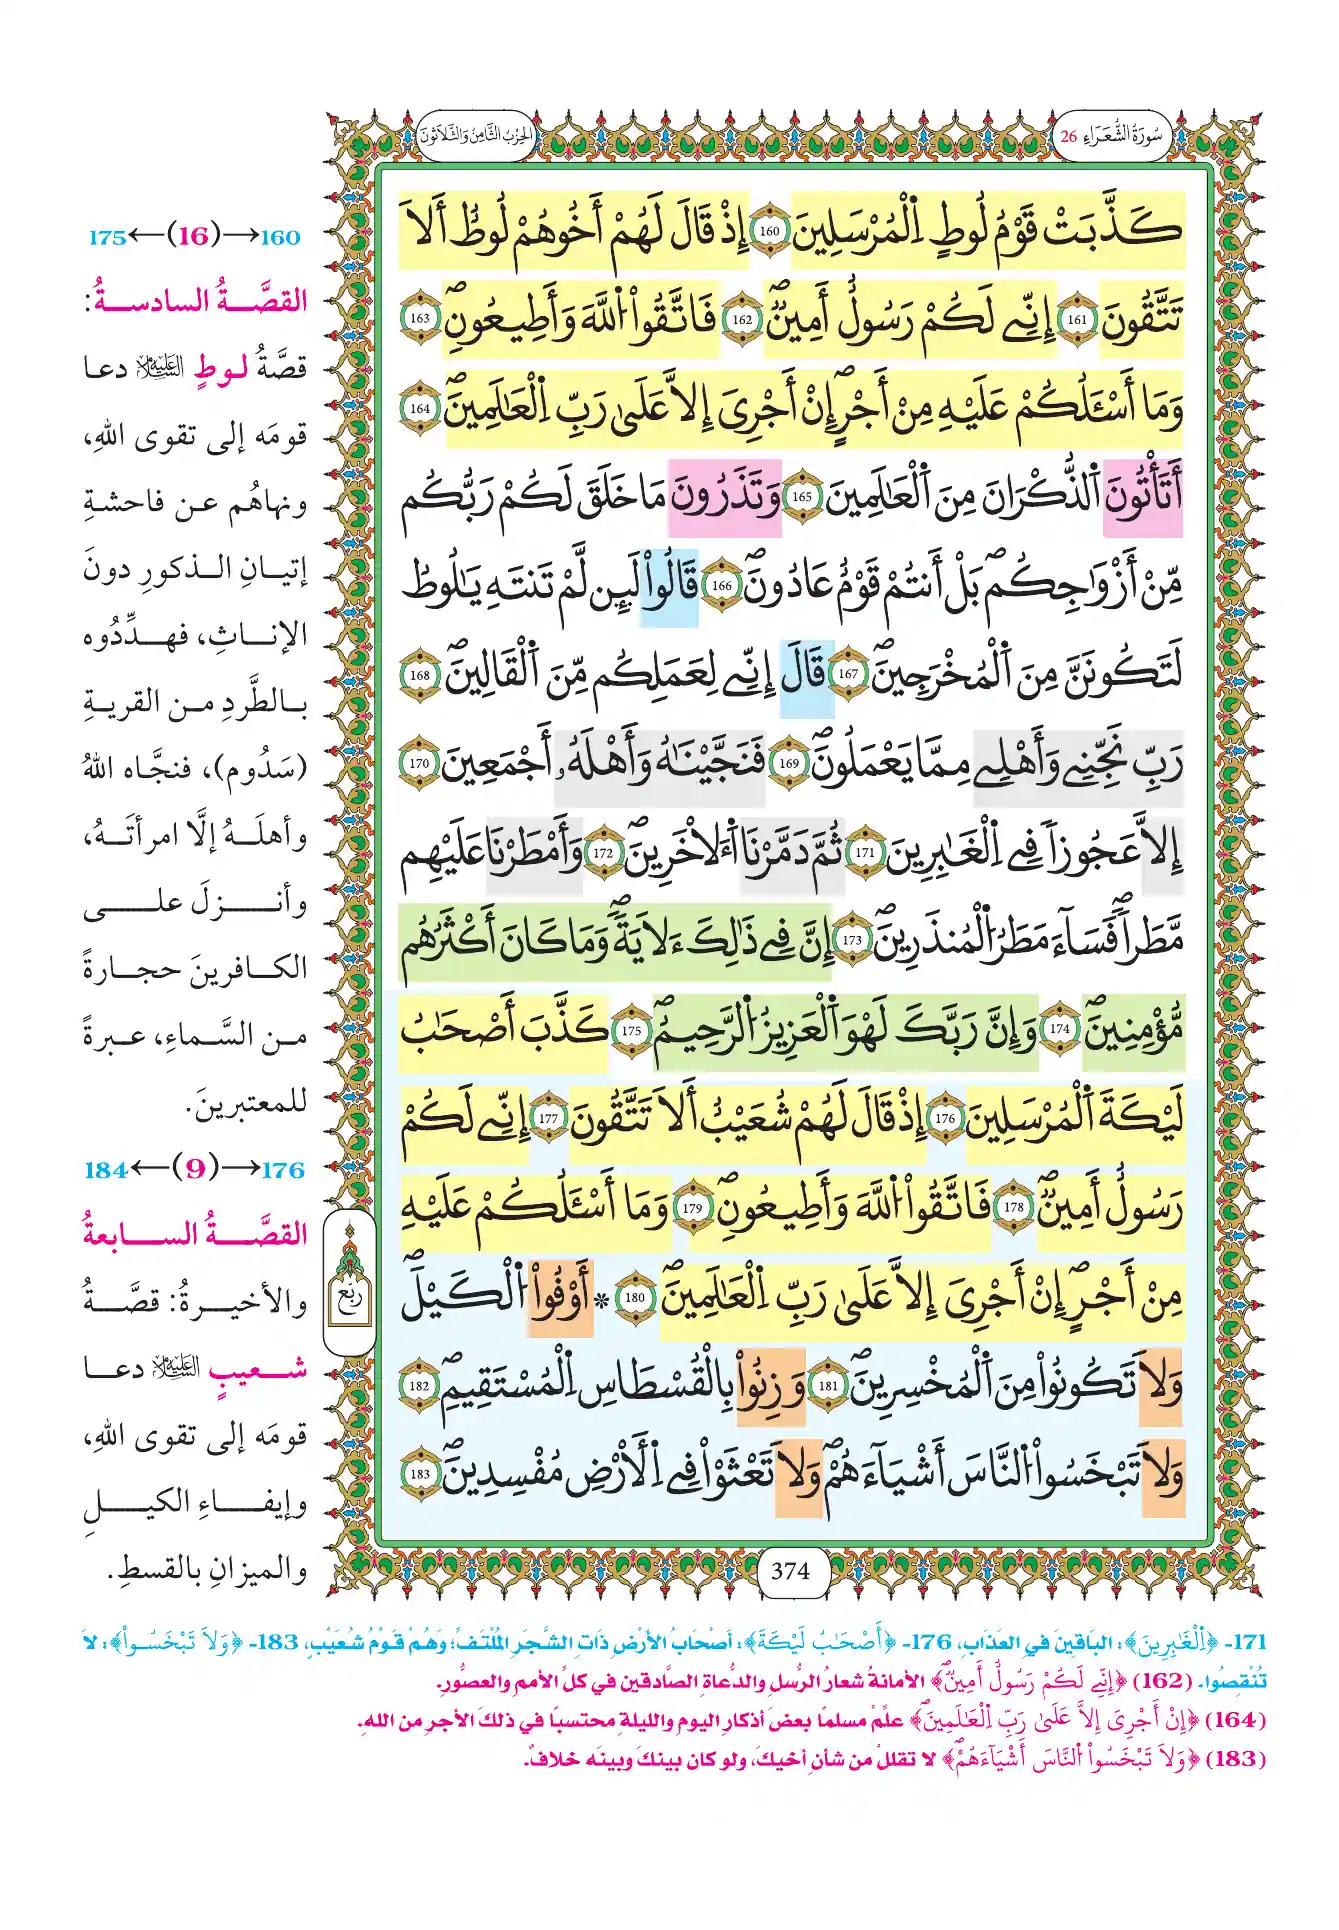 سُورَةُ الشُّعَرَاءِ 26
الحِزْبُ الثَّامِنُ وَالثَّلَاثُونَ
كَذَّبَتْ قَوْمُ لُوطٍ اِلْمُرْسَلِينَ 160 إِذْ قَالَ لَهُمْ أَخُوهُمْ لُوطٌ أَلَا
تَتَّقُونَ 161 إِنِّي لَكُمْ رَسُولٌ أَمِينٌ 162 فَاتَّقُوا اللَّهَ وَأَطِيعُونِ 163
وَمَا أَسْـَٔلُكُمْ عَلَيْهِ مِنْ أَجْرٍ إِنْ أَجْرِىَ إِلَّا عَلَىٰ رَبِّ اِلْعَٰلَمِينَ 164
أَتَأْتُونَ اَلذُّكْرَانَ مِنَ اَلْعَٰلَمِينَ 165 وَتَذَرُونَ مَا خَلَقَ لَكُمْ رَبُّكُم
مِّنْ أَزْوَٰجِكُم بَلْ أَنتُمْ قَوْمٌ عَادُونَ 166 قَالُواْ لَئِن لَّمْ تَنتَهِ يَٰلُوطُ
لَتَكُونَنَّ مِنَ اَلْمُخْرَجِينَ 167 قَالَ إِنِّي لِعَمَلِكُم مِّنَ اَلْقَالِينَ 168
رَبِّ نَجِّنِي وَأَهْلِي مِمَّا يَعْمَلُونَ 169 فَنَجَّيْنَٰهُ وَأَهْلَهُۥ أَجْمَعِينَ 170
إِلَّا عَجُوزاً فِي اِلْغَٰبِرِينَ 171 ثُمَّ دَمَّرْنَا اَلْأٓخَرِينَ 172 وَأَمْطَرْنَا عَلَيْهِم
مَّطَراً فَسَآءَ مَطَرُ اُلْمُنذَرِينَ 173 إِنَّ فِي ذَٰلِكَ ءَلَايَةً وَمَا كَانَ أَكْثَرُهُم
مُّؤْمِنِينَ 174 وَإِنَّ رَبَّكَ لَهْوَ اَلْعَزِيزُ اُلرَّحِيمُ 175 كَذَّبَ أَصْحَٰبُ
لَيْكَةَ اَلْمُرْسَلِينَ 176 إِذْ قَالَ لَهُمْ شُعَيْبٌ أَلَا تَتَّقُونَ 177 إِنِّي لَكُمْ
رَسُولٌ أَمِينٌ 178 فَاتَّقُوا اللَّهَ وَأَطِيعُونِ 179 وَمَا أَسْـَٔلُكُمْ عَلَيْهِ
مِنْ أَجْرٍ إِنْ أَجْرِىَ إِلَّا عَلَىٰ رَبِّ اِلْعَٰلَمِينَ 180 * أَوْفُواْ اُلْكَيْلَ
وَلَا تَكُونُواْ مِنَ اَلْمُخْسِرِينَ 181 وَزِنُواْ بِالْقُسْطَاسِ اِلْمُسْتَقِيمِ 182
وَلَا تَبْخَسُواْ اُلنَّاسَ أَشْيَآءَهُمْ وَلَا تَعْثَوْاْ فِي اِلْأَرْضِ مُفْسِدِينَ 183
374
ربع
160→(16)←175
القصَّةُ السادسةُ:
قصَّةُ لوطٍ عليه السلام دعا
قومَه إلى تقوى اللهِ،
ونهاهُم عن فاحشةِ
إتيانِ الذكورِ دونَ
الإناثِ، فهدِّدُوه
بالطَّردِ من القريةِ
(سَدُوم)، فنجَّاه اللهُ
وأهلَهُ إلَّا امرأتَهُ،
وأنزلَ على
الكافرينَ حجارةً
من السَّماءِ، عبرةً
للمعتبرينَ.
176→(9)←184
القصَّةُ السابعةُ
والأخيرةُ: قصَّةُ
شعيبٍ عليه السلام دعا
قومَه إلى تقوى اللهِ،
وإيفاءِ الكيلِ
والميزانِ بالقسطِ.
171- ﴿اِلْغَٰبِرِينَ﴾: البَاقِينَ فِي العَذَابِ، 176- ﴿أَصْحَٰبُ لَيْكَةَ﴾: أصْحَابُ الأرْضِ ذَاتِ الشَّجَرِ المُلْتَفِّ؛ وَهُمْ قَوْمُ شُعَيْبٍ، 183- ﴿وَلَا تَبْخَسُواْ﴾: لَا
تُنْقِصُوا. (162) ﴿إِنِّي لَكُمْ رَسُولٌ أَمِينٌ﴾ الأمانةُ شعارُ الرُّسلِ والدُّعاةِ الصَّادقين في كلِّ الأممِ والعصُورِ.
(164) ﴿إِنْ أَجْرِىَ إِلَّا عَلَىٰ رَبِّ اِلْعَٰلَمِينَ﴾ علِّمْ مسلمًا بعضَ أذكارِ اليومِ والليلةِ محتسبًا في ذلكَ الأجرَ من اللهِ.
(183) ﴿وَلَا تَبْخَسُواْ اُلنَّاسَ أَشْيَآءَهُمْ﴾ لا تقللْ من شأنِ أخيكَ، ولو كان بينكَ وبينَه خلافٌ.